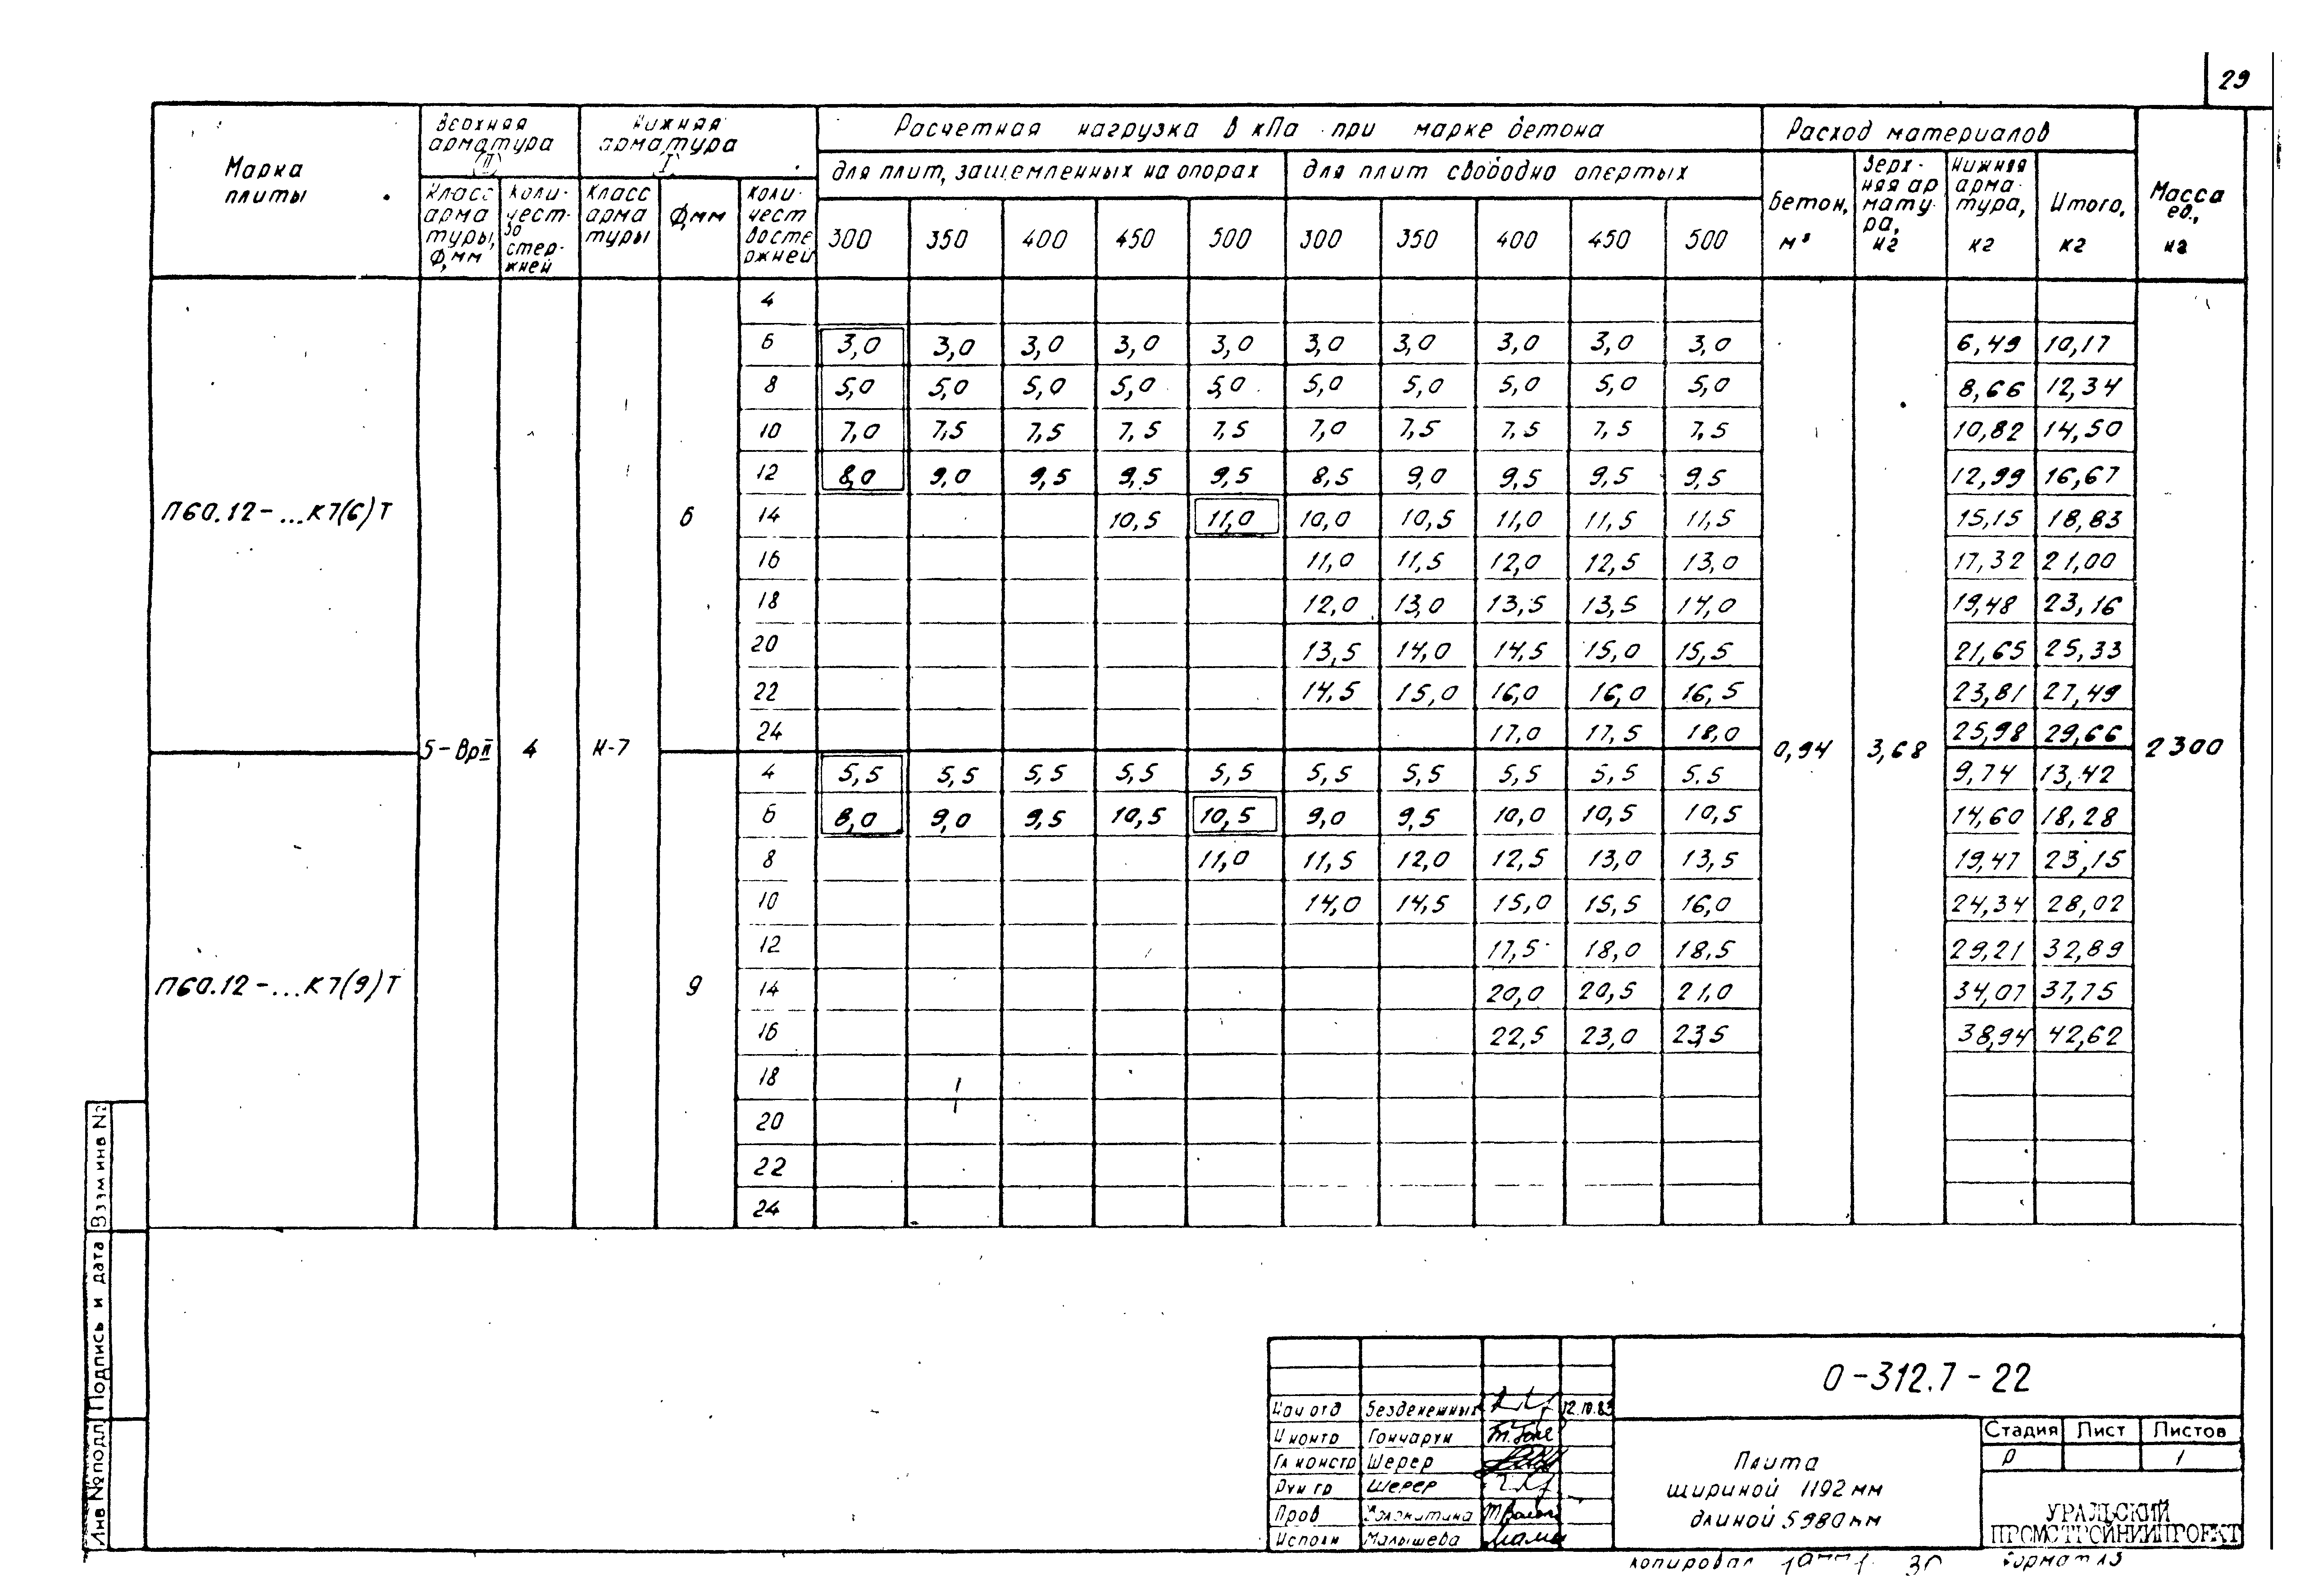 29
Марка плиты
Верхняя арматура (II)
Нижняя арматура (I)
Расчетная нагрузка в кПа при марке бетона
Расход материалов
Масса ед., кг
для плит, защемленных на опорах
для плит свободно опертых
Класс арматуры, Ф,мм
Количество стержней
Класс арматуры
Ф,мм
Количество стержней
300 350 400 450 500 300 350 400 450 500
Бетон, м³
Верхняя арматура, кг
Нижняя арматура, кг
Итого, кг
4
6 3,0 3,0 3,0 3,0 3,0 3,0 3,0 3,0 3,0 3,0 6,49 10,17
8 5,0 5,0 5,0 5,0 5,0 5,0 5,0 5,0 5,0 5,0 8,66 12,34
10 7,0 7,5 7,5 7,5 7,5 7,0 7,5 7,5 7,5 7,5 10,82 14,50
12 8,0 9,0 9,5 9,5 9,5 8,5 9,0 9,5 9,5 9,5 12,99 16,67
П60.12-...К7(6)Т 6 14 10,5 11,0 10,0 10,5 11,0 11,5 11,5 15,15 18,83
16 11,0 11,5 12,0 12,5 13,0 17,32 21,00
18 12,0 13,0 13,5 13,5 14,0 19,48 23,16
20 13,5 14,0 14,5 15,0 15,5 21,65 25,33
22 14,5 15,0 16,0 16,0 16,5 23,81 27,49
24 17,0 17,5 18,0 25,98 29,66
5-ВрII 4 К-7 0,94 3,68 2300
4 5,5 5,5 5,5 5,5 5,5 5,5 5,5 5,5 5,5 5,5 9,74 13,42
6 8,0 9,0 9,5 10,5 10,5 9,0 9,5 10,0 10,5 10,5 14,60 18,28
8 11,0 11,5 12,0 12,5 13,0 13,5 19,47 23,15
10 14,0 14,5 15,0 15,5 16,0 24,34 28,02
12 17,5 18,0 18,5 29,21 32,89
П60.12-...К7(9)Т 9 14 20,0 20,5 21,0 34,07 37,75
16 22,5 23,0 23,5 38,94 42,62
18
20
22
24
Взам инв №
Подпись и дата
Инв № подл
0-312.7-22
Нач отд Безденежных 12.10.83
Н контр Гончарук
Гл констр Шерер
Рук гр Шерер
Пров Волокитина
Исполн Малышева
Плита
шириной 1192 мм
длиной 5980 мм
Стадия Лист Листов
Р 1
УРАЛЬСКИЙ
ПРОМСТРОЙНИИПРОЕКТ
Копировал 30 Формат А3